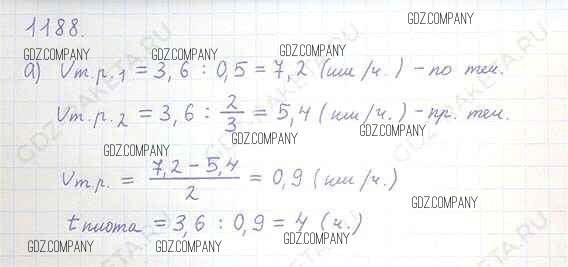 1188.
GDZ.COMPANY
GDZ.COMPANY GDZ.COMPANY GDZ.COMPANY GDZ.COMPANY
а) Vт.р.1 = 3,6 : 0,5 = 7,2 (км/ч.) – по теч.
GDZ-RAKETA.RU
Vт.р.2 = 3,6 : 2/3 = 5,4 (км/ч.) – пр. теч.
GDZ.COMPANY GDZ.COMPANY GDZ.COMPANY
Vт.р. = (7,2 – 5,4)/2 = 0,9 (км/ч.)
GDZ.COMPANY
t плота = 3,6 : 0,9 = 4 (ч.)
GDZ.COMPANY GDZ.COMPANY GDZ.COMPANY